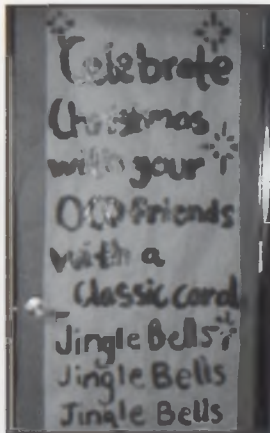 Celebrate
Christmas
with your
OCD friends
with a
classic carol
Jingle Bells
Jingle Bells
Jingle Bells